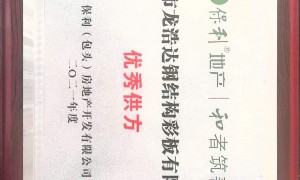 保利®地产｜和者筑
市龙浩达钢结构彩板有
优秀供方
保利（包头）房地产开发有限公司
二〇二一年度